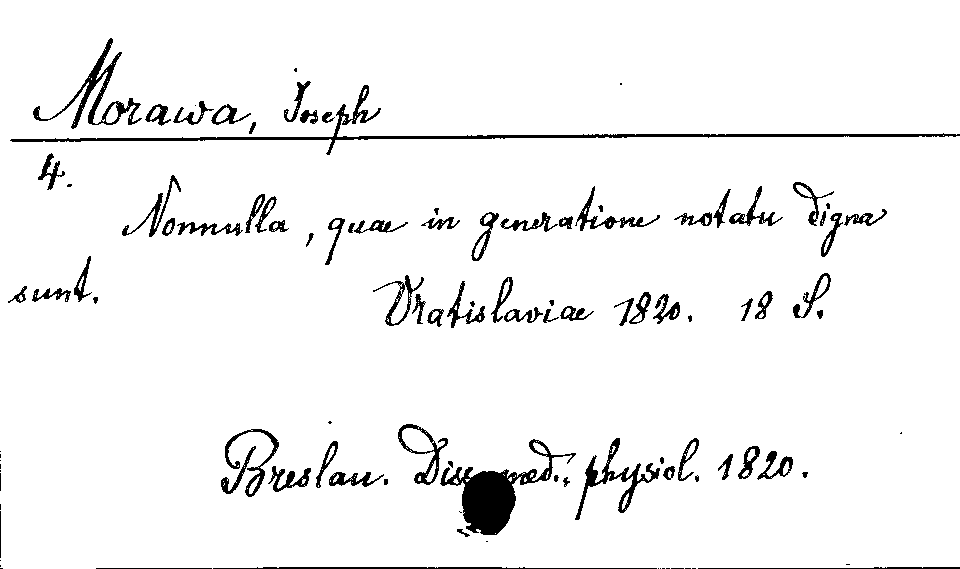 Morawa, Joseph
4.
Nonnulla, quae in generatione notatu digna
sunt.
Vratislaviae 1820. 18 S.
Breslau. Diss. med., physiol. 1820.